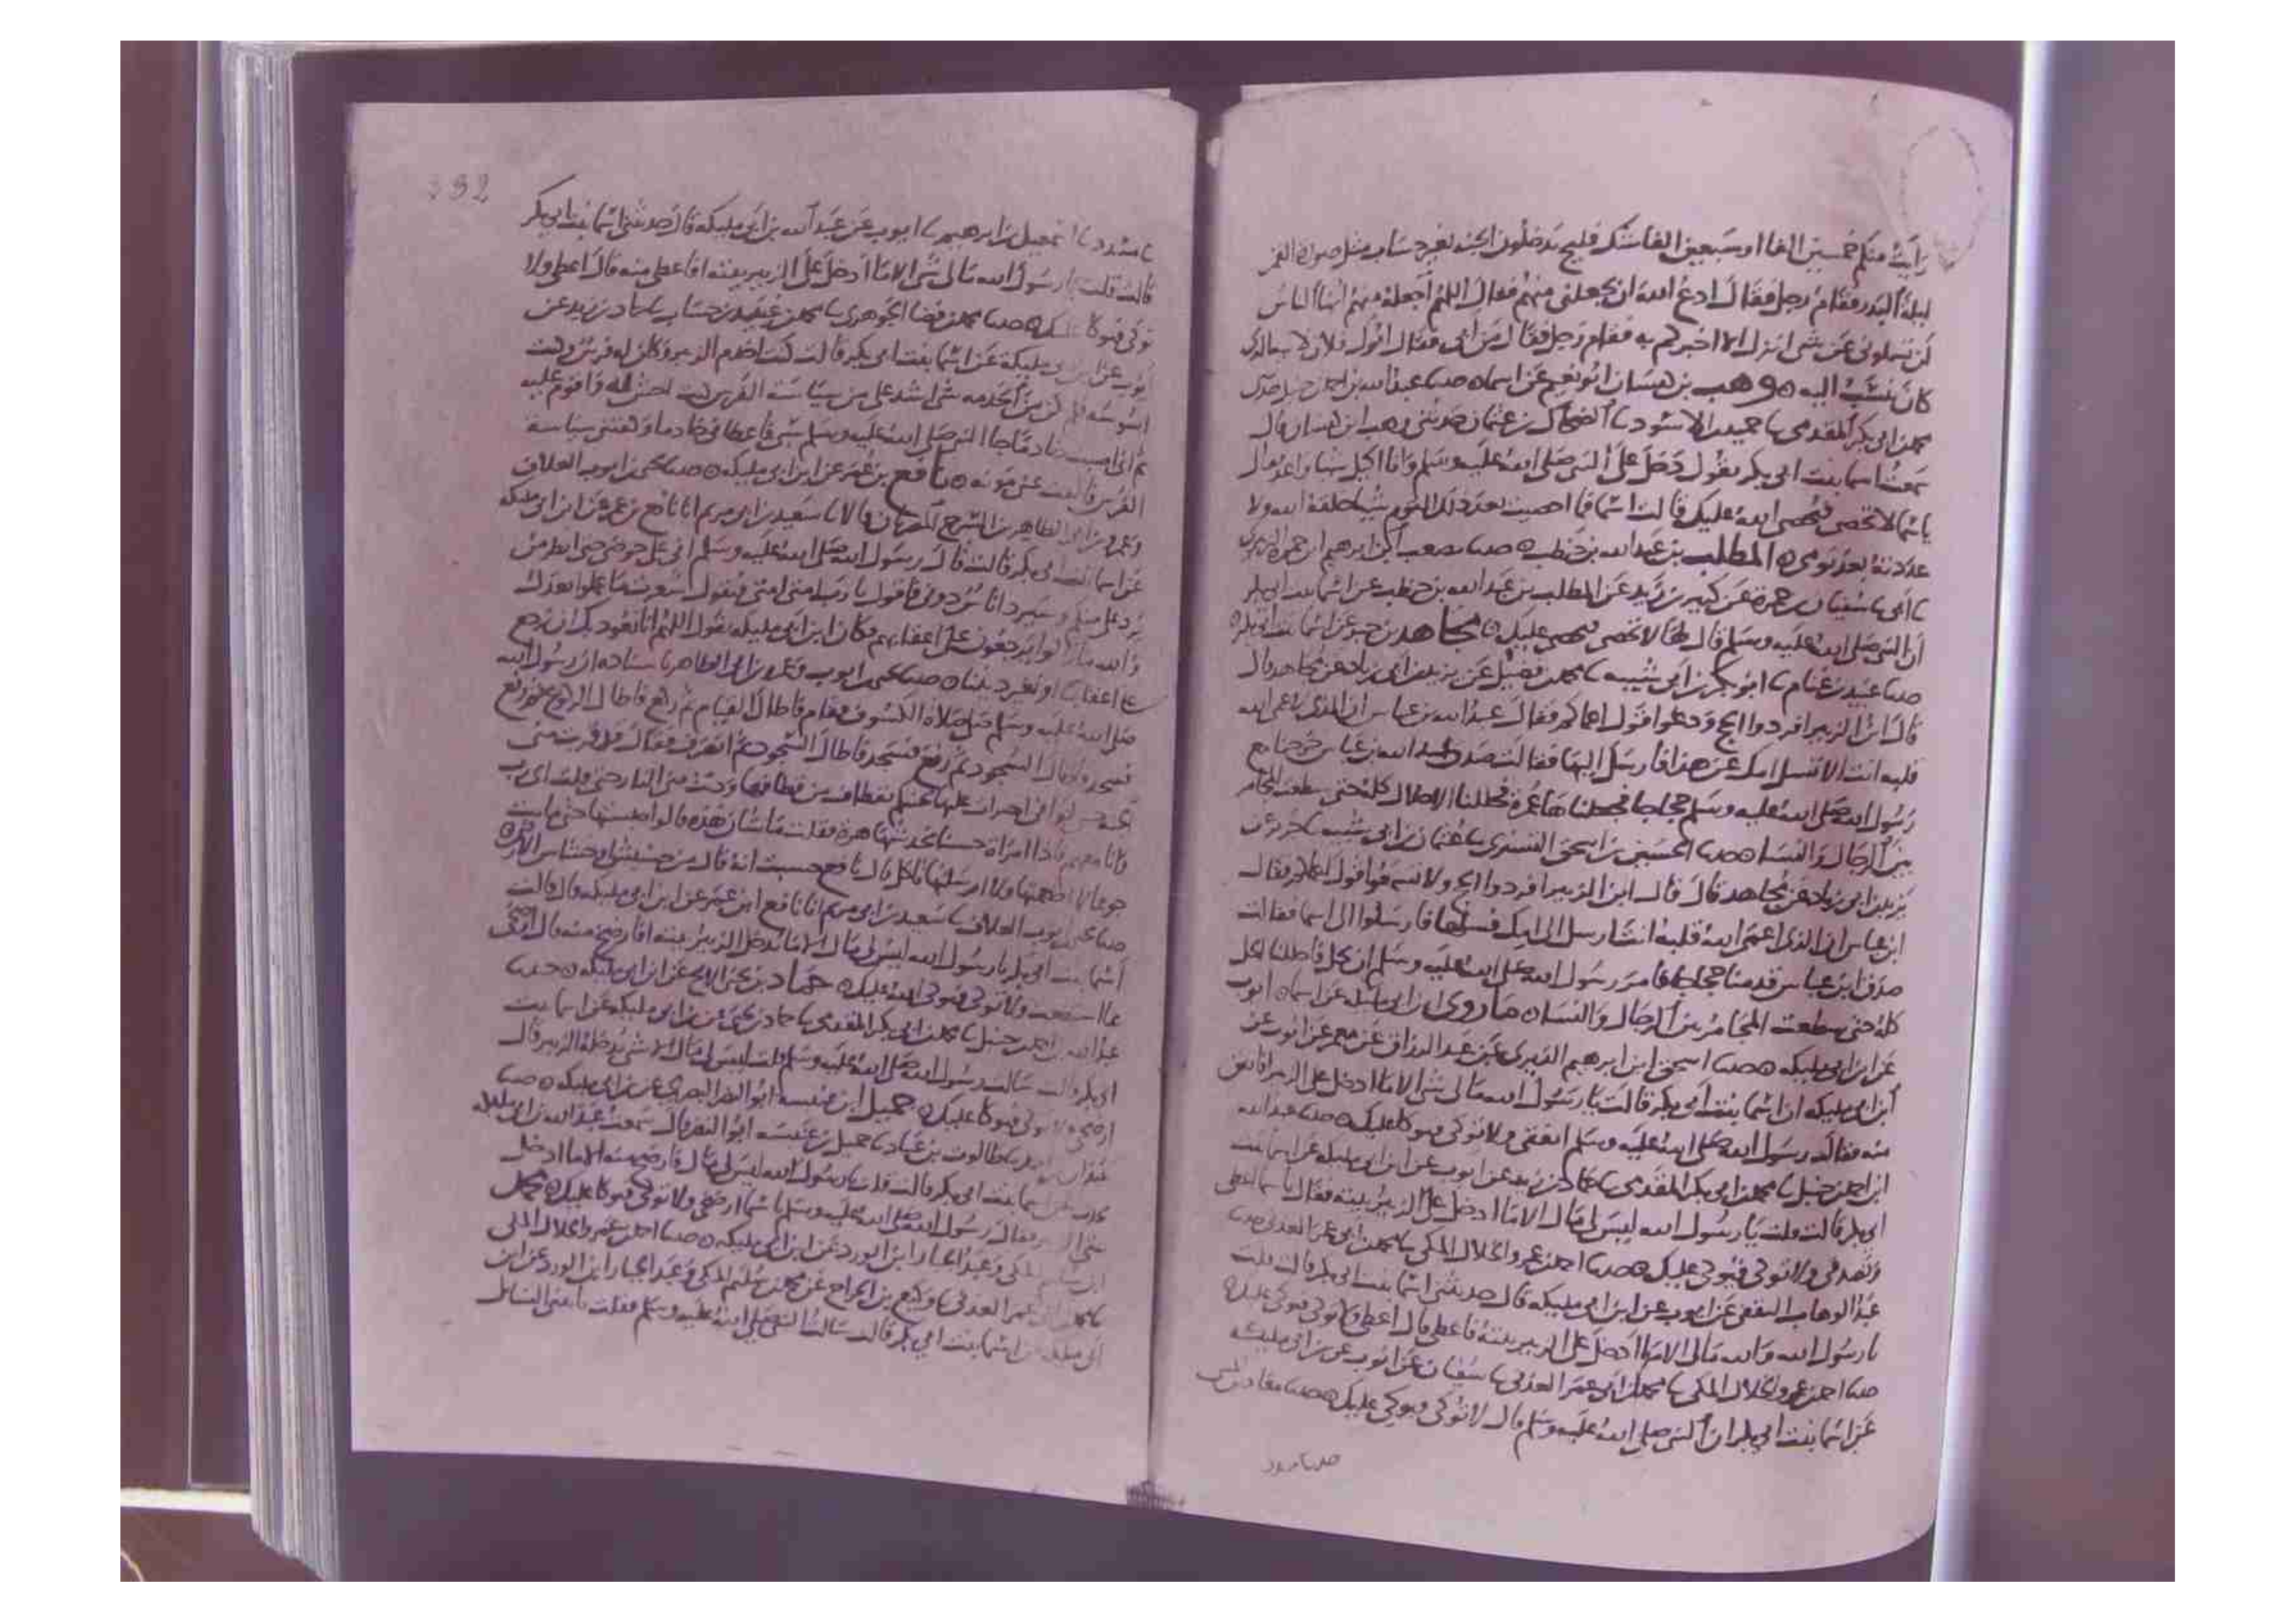 رأيت منكم خمسين الفا او سبعين الفا يدخلون الجنة مثل صورة القمر
ليلة البدر فقام رجل فقال ادع الله ان يجعلني منهم فقال اللهم اجعله منهم ايها الناس
لن تسلوني عن شي انزل الا اخبرتكم به فقام رجل فقال من ابي فقال ابوك فلان
كان ينسب اليه ٥ وهب بن كيسان ابو نعيم عن اسما ٥ حدثنا عبد الله بن احمد بن حنبل حدثني
محمد بن ابي بكر المقدمي نا حميد بن الاسود نا الضحاك بن عثمان حدثني وهب بن كيسان قال
سمعت اسما بنت ابي بكر تقول دخل علي النبي صلى الله عليه وسلم وانا اكيل شيا واعده قال
يا اسما لا تحصي فيحصي الله عليك قالت اسما فما احصيت بعد ذلك اليوم شيا خلقه الله ولا
عددته بعد يومي ٥ المطلب بن عبد الله بن حنطب ٥ حدثنا مصعب بن ابرهيم بن حمزة الزبيري
نا ابي نا سفيان بن حمزة عن كثير بن زيد عن المطلب بن عبد الله بن حنطب عن اسما بنت ابي بكر
ان النبي صلى الله عليه وسلم قال لها لا تحصي فيحصى عليك ٥ مجاهد بن جبر عن اسما بنت ابي بكر ٥
حدثنا عبيد بن غنام نا ابو بكر بن ابي شيبه نا محمد بن فضيل عن يزيد بن ابي زياد عن مجاهد قال
قال ابن الزبير افردوا الحج ودعوا قول اعماكم فقال عبد الله بن عباس ان الذي اعمى الله
قلبه انت الا تسل امك عن هذا فارسل اليها فقالت صدق عبد الله بن عباس خرجنا مع
رسول الله صلى الله عليه وسلم حجاجا فجعلناها عمرة فحللنا الاحلال كله حتى سطعت المجامر
بين الرجال والنسا ٥ حدثنا الحسين بن اسحق التستري نا عثمان بن ابي شيبه نا جرير عن
يزيد بن ابي زياد عن مجاهد قال قال ابن الزبير افردوا الحج ولا تتبعوا قول اعماكم فقال
ابن عباس ان الذي اعمى الله قلبه انت ارسل الى امك فسلها فارسلوا الى اسما فقالت
صدق ابن عباس قدمنا حجاجا فامر رسول الله صلى الله عليه وسلم ان نحل فاحللنا الحل
كله حتى سطعت المجامر بين الرجال والنسا ٥ ما روى ابن ابي مليكه عن اسما ٥ ايوب
عن ابن ابي مليكه ٥ حدثنا اسحق بن ابرهيم الدبري عن عبد الرزاق عن معمر عن ايوب عن
ابن ابي مليكه ان اسما بنت ابي بكر قالت يا رسول الله مالي شي الا ما ادخل علي الزبير افانفق
منه فقال رسول الله صلى الله عليه وسلم انفقي ولا توكي فيوكا عليك ٥ حدثنا عبد الله
ابن احمد بن حنبل نا محمد بن ابي بكر المقدمي نا حماد بن زيد عن ايوب عن ابن ابي مليكه عن اسما بنت
ابي بكر قالت قلت يا رسول الله ليس لي مال الا ما ادخل علي الزبير بيته فقال يا اسما اعطي
وتصدقي ولا توكي فيوكى عليك ٥ حدثنا احمد بن عمرو الخلال المكي نا محمد بن ابي عمر العدني نا
عبد الوهاب الثقفي عن ايوب عن ابن ابي مليكه قال حدثتني اسما بنت ابي بكر قالت قلت
يا رسول الله والله مالي الا ما ادخل علي الزبير بيته فاعطي قال اعطي ولا توكي فيوكى عليك ٥
حدثنا احمد بن عمرو الخلال المكي نا محمد بن ابي عمر العدني نا سفيان عن ايوب عن ابن ابي مليكه
عن اسما بنت ابي بكر ان النبي صلى الله عليه وسلم قال لا توكي فيوكى عليك ٥ حدثنا معاذ بن المثنى
حدثنا مسدد
332
نا مسدد نا اسمعيل بن ابرهيم نا ايوب عن عبد الله بن ابي مليكه قال حدثتني اسما بنت ابي بكر
قالت قلت يا رسول الله مالي شي الا ما ادخل علي الزبير بيته افاعطي منه قال اعطي ولا
توكي فيوكا عليك ٥ حدثنا محمد بن نا محمد بن عبيد بن حساب نا حماد بن زيد عن
ايوب عن ابن ابي مليكة عن اسما بنت ابي بكر قالت كنت اخدم الزبير وكان له فرس وكنت
اسوسه فلم يكن من الخدمه شي اشد علي من سياسة الفرس كنت احتش له واقوم عليه
ثم اني اصبت خادما جا النبي صلى الله عليه وسلم سبي فاعطاني خادما وكفتني سياسة
الفرس فالقت عني مونه ٥ نافع بن عمر عن ابن ابي مليكه ٥ حدثنا يحيى بن ايوب العلاف
وعمرو بن ابي الطاهر بن السرح المصريان قالا نا سعيد بن ابي مريم انا نافع بن عمر عن ابن ابي مليكه
عن اسما بنت ابي بكر قالت قال رسول الله صلى الله عليه وسلم اني على حوضي حتى انظر من
يرد علي منكم وسيرد اناس دوني فاقول يا رب مني ومن امتي فيقول اشعرت ما عملوا بعدك
والله ما زالوا يرجعون على اعقابهم وكان ابن ابي مليكه يقول اللهم انا نعوذ بك ان نرجع
على اعقابنا او نفتن في ديننا ٥ حدثنا يحيى بن ايوب وعمرو بن ابي الطاهر باسناده ان رسول الله
صلى الله عليه وسلم صلى صلاة الكسوف فقام فاطال القيام ثم ركع فاطال الركوع ثم رفع
فسجد فاطال السجود ثم رفع فسجد فاطال السجود ثم انصرف فقال قد دنت مني
الجنة حتى لو اني اجترات عليها لجئتكم بقطاف من قطافها ودنت مني النار حتى قلت اي رب
وانا معهم فاذا امراة تخدشها هرة فقلت ما شان هذه قالوا حبستها حتى ماتت
جوعا لا اطعمتها ولا ارسلتها تاكل قال نافع حسبت انه قال من خشيش او خشاش الارض ٥
حدثنا يحيى بن ايوب العلاف نا سعيد بن ابي مريم انا نافع ابن عمر عن ابن ابي مليكه قال قالت
اسما بنت ابي بكر يا رسول الله ليس لي مال الا ما يدخل الزبير بيته افارضخ منه قال ارضخي
ما استطعت ولا توكي فيوكي الله عليك ٥ حماد بن يحيى الابح عن ابن ابي مليكه ٥ حدثنا
عبد الله بن احمد بن حنبل نا محمد بن ابي بكر المقدمي نا حماد بن يحيى عن ابن ابي مليكه عن اسما بنت
ابي بكر قالت سالت رسول الله صلى الله عليه وسلم قلت ليس لي مال الا شي يدخله الزبير قال
ارضخي ولا توكي فيوكا عليك ٥ جميل ابن عنبسه ابو النضر البصري عن ابن ابي مليكه ٥ حدثنا
عبدان بن احمد نا طالوت بن عباد نا جميل بن عنبسه ابو النضر قال سمعت عبد الله بن ابي مليكه
يحدث عن اسما بنت ابي بكر قالت قلت يا رسول الله ليس لي مال فارضخ منه الا ما ادخل
علي الزبير فقال رسول الله صلى الله عليه وسلم يا اسما ارضخي ولا توكي فيوكا عليك ٥ محمد
ابن سليم المكي وعبد الجبار ابن الورد عن ابن ابي مليكه ٥ حدثنا احمد بن عمرو الخلال المكي
نا محمد بن ابي عمر العدني نا وكيع بن الجراح عن محمد بن سليم المكي وعبد الجبار ابن الورد عن ابن
ابي مليكه عن اسما بنت ابي بكر قالت سالت النبي صلى الله عليه وسلم فقلت ياتيني السائل